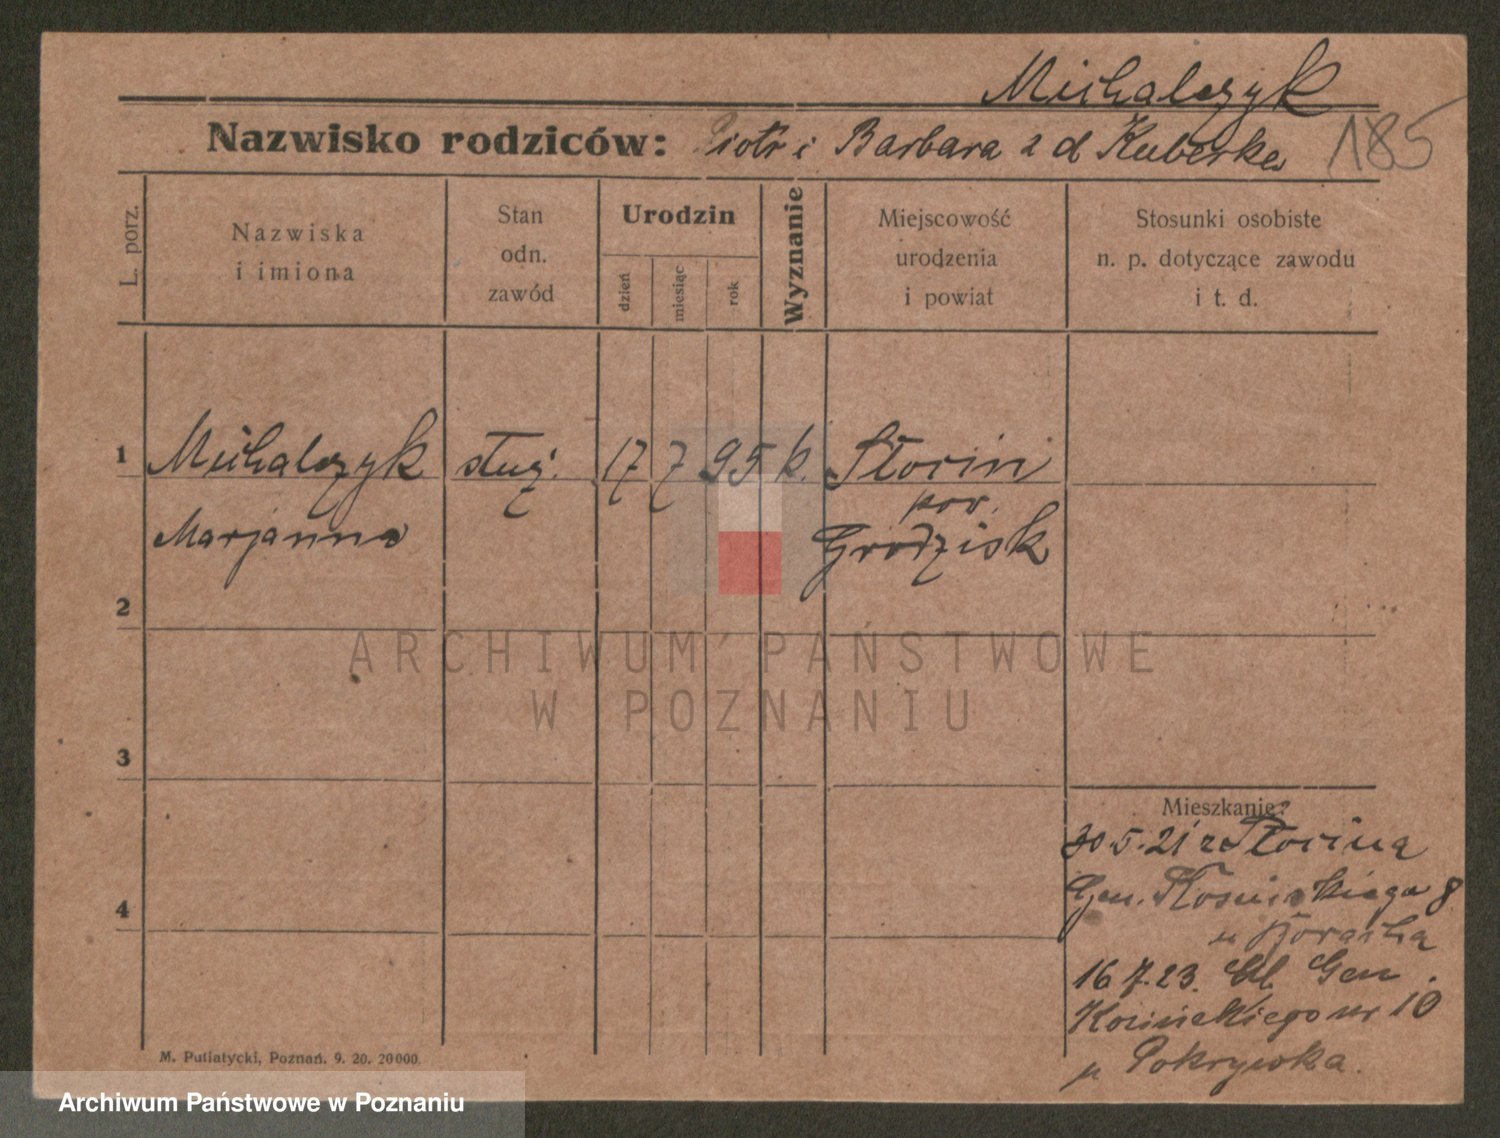 Michalczyk
Nazwisko rodziców: Piotr i Barbara z d Kuberka 185
L. porz.
Nazwiska
i imiona
Stan
odn.
zawód
Urodzin
dzień
miesiąc
rok
Wyznanie
Miejscowość
urodzenia
i powiat
Stosunki osobiste
n. p. dotyczące zawodu
i t. d.
1 Michalczyk służ. 17 7 95 k. Słocin
pow.
Marjanna Grodzisk
2
ARCHIWUM PAŃSTWOWE
W POZNANIU
3
4
Mieszkanie:
30.5.21 z Słocina
Gen. Kosińskiego 8
u
16 7.23. Ul. Gen.
Kosińskiego nr 10
p Pokrywka.
M. Putiatycki, Poznań. 9. 20. 20000.
Archiwum Państwowe w Poznaniu